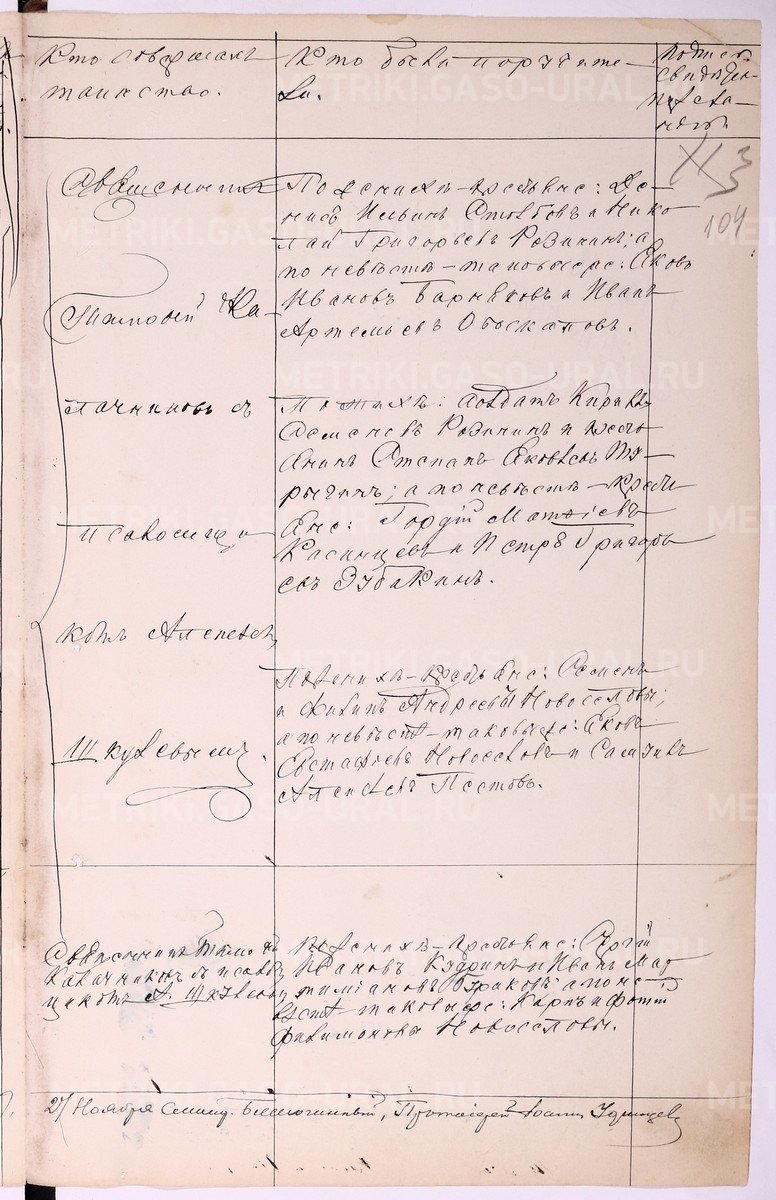 Кто совершалъ
таинство.
Кто были поручите-
ли.
Подпись
свидѣте-
лей
желанію
Священникъ
Тимофей Ка-
лачниковъ съ
псаломщи
комъ Алексѣем
Шкулевымъ.
По женихѣ – крестьяне: Де-
нисъ Ильинъ Столбовъ и Нико
лай Григорьевъ Розининъ; а
по невѣстѣ – таковые же: Яковъ
Ивановъ Барняковъ и Иванъ
Артемьевъ Обоскаловъ.
По женихѣ: солдатъ Кирилъ
Семеновъ Розининъ и кресть
янинъ Степанъ Яковлевъ
а по невѣстѣ – кресть
яне: Гордій Матвіевъ
Касинцевъ и Петръ Григорь
евъ Зубакинъ.
По женихѣ – крестьяне: Семенъ
и Филипъ Андреевы Новоселовы;
а по невѣстѣ – таковые же: Яковъ
Евстафіевъ Новоселовъ и Самуилъ
Алексѣевъ Постовъ.
Священникъ Тимофей
Калачниковъ съ псалом
щикомъ А. Шкулевым
По женихѣ – крестьяне: Сергій
Ивановъ Кудринъ и Иванъ Мар
тиміановъ Бураковъ; а по не-
вѣстѣ – таковые же: Карпъ и Фотій
Филимоновы Новоселовы.
104
27 Ноября Благочинный, Протоіерей Іоаннъ Удинцевъ
METRIKI.GASO-URAL.RU